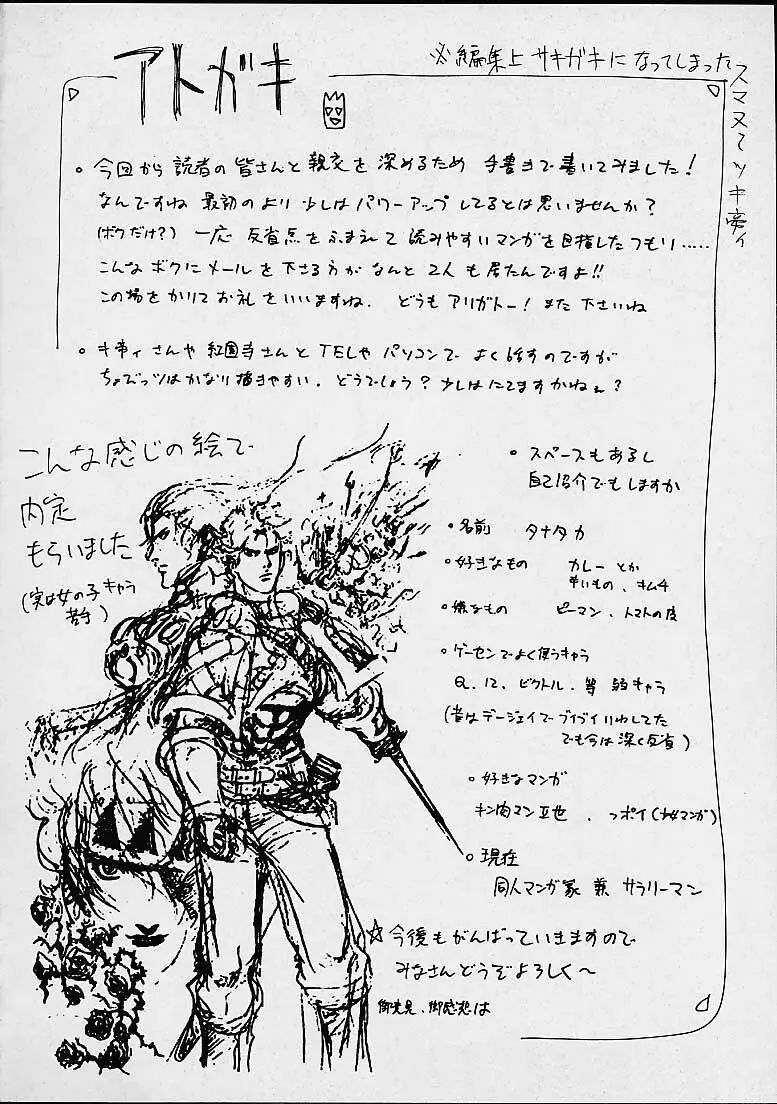 アトガキ
※編集上 サキガキになってしまった
スマヌ
。今回から読者の皆さんと親交を深めるため 手書きで書いてみました!
なんですね 最初のより少しはパワーアップしてるとは思いませんか?
(ボクだけ?) 一応 反省点をふまえて読みやすいマンガを目指したつもり.....
こんなボクにメールを下さる方がなんと2人も居たんですよ!!
この場をかりてお礼をいいますね. どうもアリガトー! また下さいね
さんや紅園寺さんとTELやパソコンでよく話すのですが
ちょびっツはかなり描きやすい. どうでしょう? 少しはにてますかねぇ?
こんな感じの絵で
内定
もらいました
(実は女の子キャラ
苦手)
。スペースもあるし
自己紹介でもしますか
・名前 タナタカ
・好きなもの カレーとか
辛いもの、キムチ
・嫌なもの ピーマン、トマトの皮
。ゲーセンでよく使うキャラ
Q. 12. ビクトル. 等 弱キャラ
(昔はデージェイでブイブイいわしてた
でも今は深く反省)
。好きなマンガ
キン肉マンⅡ世 、っポイ(少女マンガ)
。現在
同人マンガ家 兼 サラリーマン
☆今後もがんばっていきますので
みなさんどうぞよろしく〜
御意見、御感想は